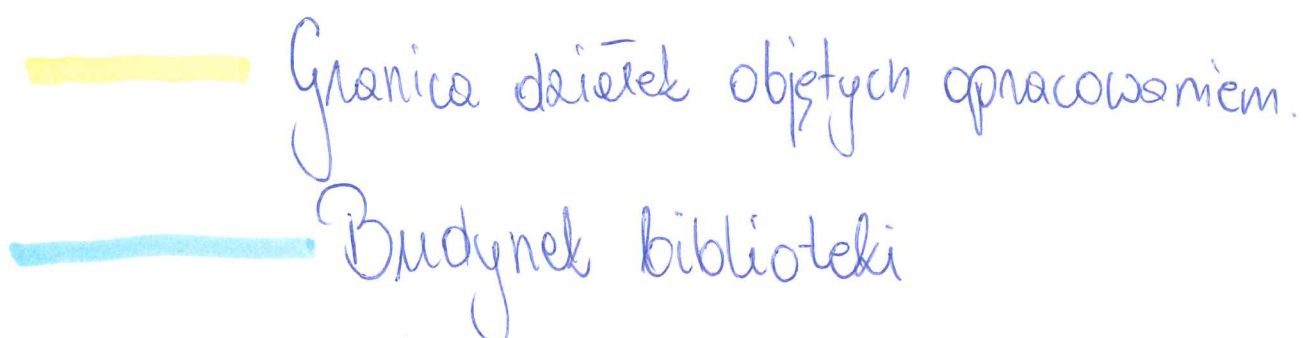 Granica działek objętych opracowaniem.
Budynek biblioteki